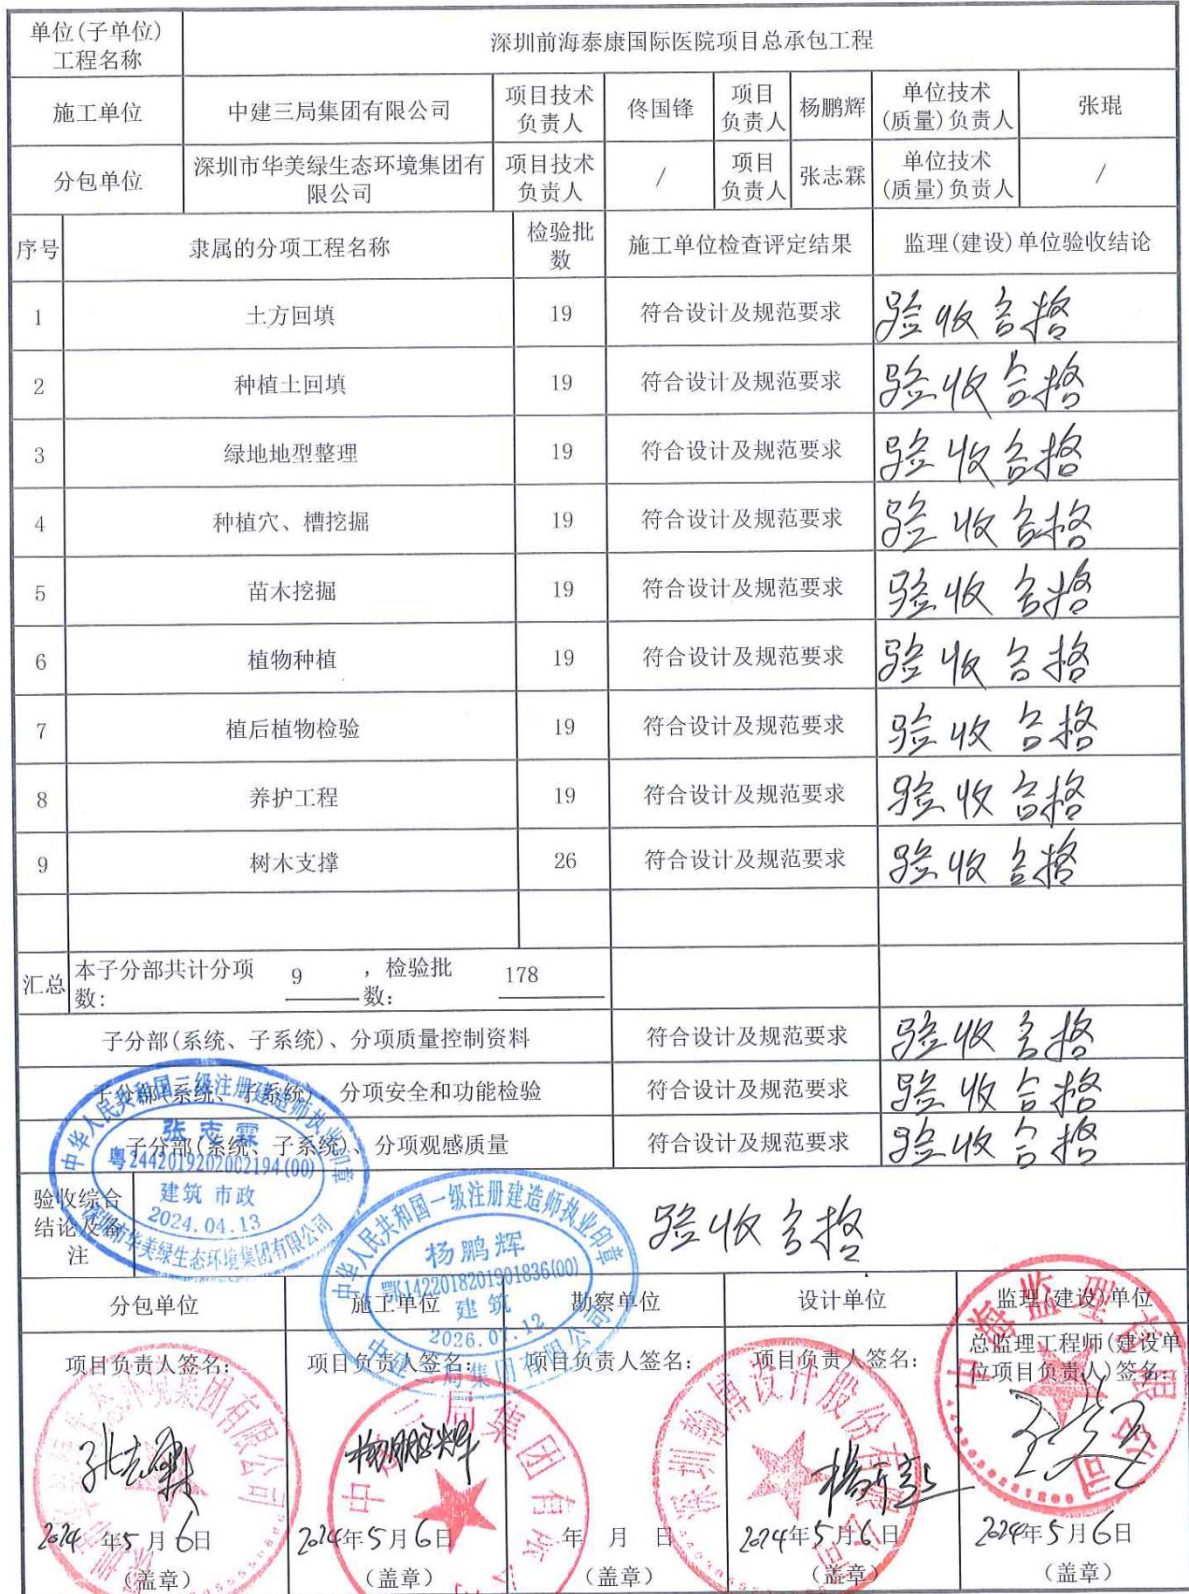 单位(子单位)
工程名称
深圳前海泰康国际医院项目总承包工程
施工单位
中建三局集团有限公司
项目技术
负责人
佟国锋
项目
负责人
杨鹏辉
单位技术
(质量)负责人
张琨
分包单位
深圳市华美绿生态环境集团有
限公司
项目技术
负责人
/
项目
负责人
张志霖
单位技术
(质量)负责人
/
序号
隶属的分项工程名称
检验批
数
施工单位检查评定结果
监理(建设)单位验收结论
1 土方回填 19 符合设计及规范要求 验收合格
2 种植土回填 19 符合设计及规范要求 验收合格
3 绿地地型整理 19 符合设计及规范要求 验收合格
4 种植穴、槽挖掘 19 符合设计及规范要求 验收合格
5 苗木挖掘 19 符合设计及规范要求 验收合格
6 植物种植 19 符合设计及规范要求 验收合格
7 植后植物检验 19 符合设计及规范要求 验收合格
8 养护工程 19 符合设计及规范要求 验收合格
9 树木支撑 26 符合设计及规范要求 验收合格
汇总
本子分部共计分项
数:
9
，检验批
数:
178
子分部(系统、子系统)、分项质量控制资料 符合设计及规范要求 验收合格
子分部(系统、子系统)、分项安全和功能检验 符合设计及规范要求 验收合格
子分部(系统、子系统)、分项观感质量 符合设计及规范要求 验收合格
中华人民共和国二级注册建造师执业印章
张志霖
粤2442019202002194(00)
建筑 市政
2024.04.13
深圳市华美绿生态环境集团有限公司
验收综合
结论及备
注
验收合格
中华人民共和国一级注册建造师执业印章
杨鹏辉
鄂1422018201901836(00)
建筑
中建三局集团有限公司
分包单位 施工单位 勘察单位 设计单位 监理(建设)单位
项目负责人签名:
项目负责人签名:
项目负责人签名:
项目负责人签名:
总监理工程师(建设单
位项目负责人)签名:
张志霖
杨鹏辉
中海监理有限公司
中建三局集团有限公
2024年5月6日
2024年5月6日
年 月 日
2024年5月6日
2024年5月6日
(盖章)
(盖章)
(盖章)
(盖章)
(盖章)